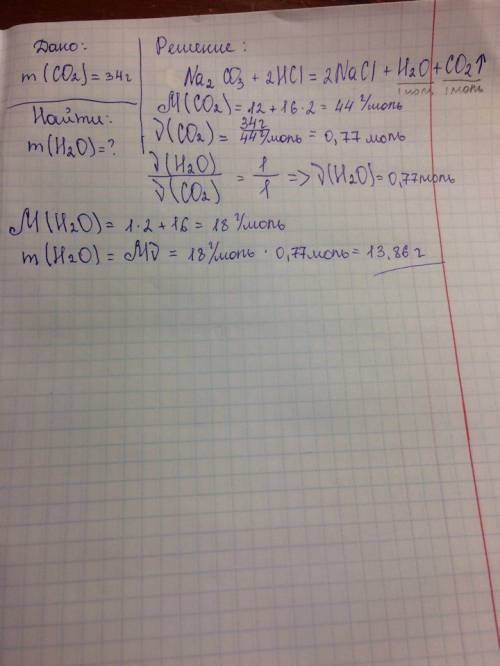 Дано:
m(CO2) = 34г
Найти:
m(H2O) = ?
Решение:
Na2CO3 + 2HCl = 2NaCl + H2O + CO2↑
1 моль 1 моль
M(CO2) = 12 + 16 · 2 = 44 г/моль
ν(CO2) = 34г / 44 г/моль = 0,77 моль
ν(H2O) / ν(CO2) = 1 / 1 => ν(H2O) = 0,77 моль
M(H2O) = 1 · 2 + 16 = 18 г/моль
m(H2O) = Mν = 18 г/моль · 0,77 моль = 13,86 г